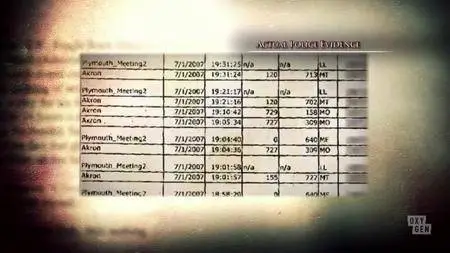 ACTUAL POLICE EVIDENCE
Plymouth_Meeting2 7/1/2007 19:31:25 n/a n/a LL
Akron 7/1/2007 19:31:24 120 713 MT
Plymouth_Meeting2 7/1/2007 19:21:17 n/a n/a LL
Akron 7/1/2007 19:21:16 120 702 MT
Akron 7/1/2007 19:10:42 729 158 MO
Akron 7/1/2007 19:05:34 727 309 MO
Plymouth_Meeting2 7/1/2007 19:04:40 0 640
Akron 7/1/2007 19:04:36 727 309 MO
Plymouth_Meeting2 7/1/2007 19:01:58 n/a n/a LL
Akron 7/1/2007 19:01:57 155 727 MT
Plymouth_Meeting2 7/1/2007 18:58:20 0 640
OXY
GEN